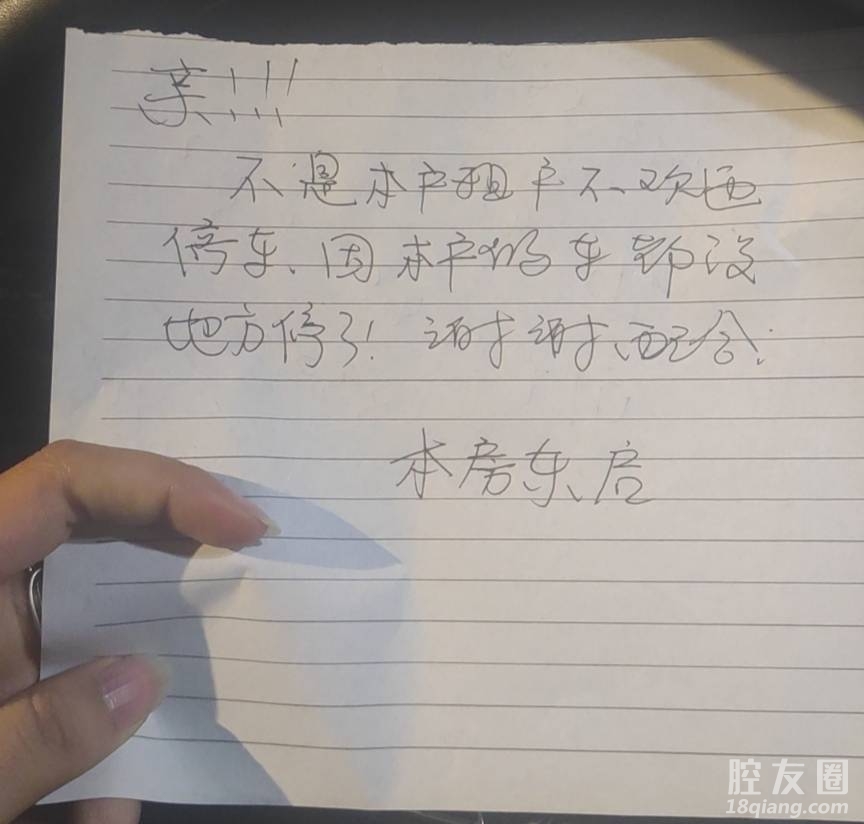 亲!!!
不是本户租户不欢迎
停车、因本户的车都没
地方停了!谢谢、配合;
本房东、启
腔友圈
18qiang.com